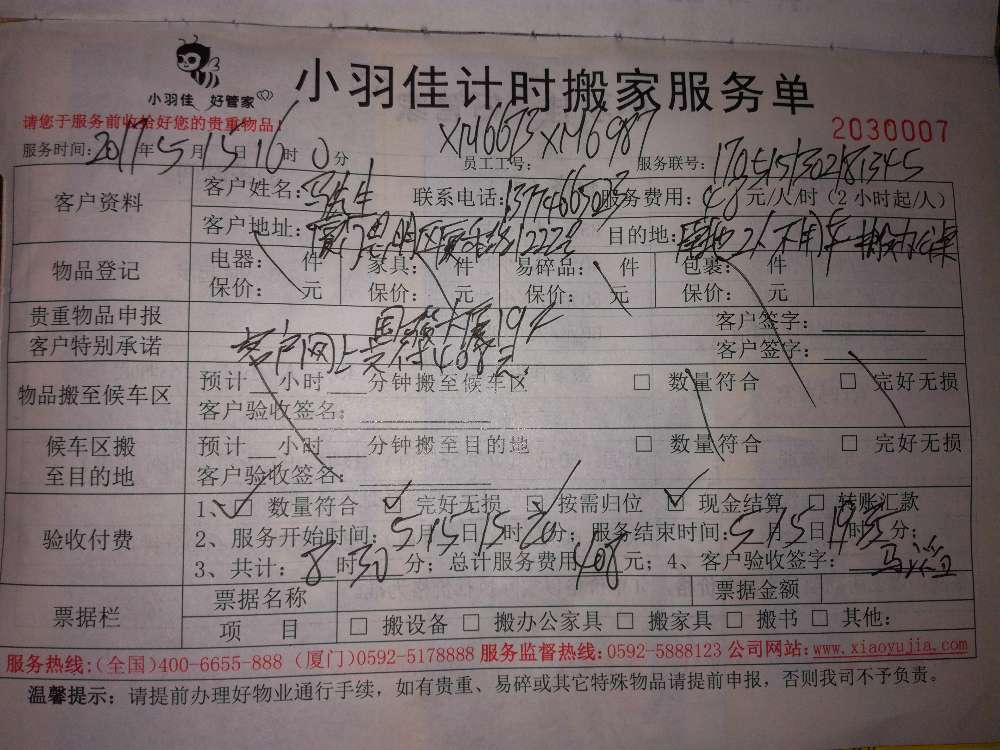 小羽佳 好管家
小羽佳计时搬家服务单
请您于服务前收拾好您的贵重物品！
2030007
服务时间：2017年5月15日16时0分 员工工号：XM6673 XM6987 服务联号：170515130218345
客户资料 客户姓名：马先生 联系电话： 服务费用：48元/人/时（2小时起/人）
客户地址：厦门思明区厦禾路1222号 目的地：原地2人不用车 搬办公桌
物品登记 电器： 件 家具： 件 易碎品： 件 包裹： 件
保价： 元 保价： 元 保价： 元 保价： 元
贵重物品申报 客户签字：
国骏大厦19
客户特别承诺 客户网上支付408元 客户签字：
物品搬至候车区 预计 小时 分钟搬至候车区 □ 数量符合 □ 完好无损
客户验收签名：
候车区搬至目的地 预计 小时 分钟搬至目的地 □ 数量符合 □ 完好无损
客户验收签名：
验收付费 1、☑ 数量符合 ☑ 完好无损 ☑ 按需归位 ☑ 现金结算 □ 转账汇款
2、服务开始时间：5月15日15时20分；服务结束时间：5月15日19时35分；
3、共计：8时30分；总计服务费用408元；4、客户验收签字：
票据栏 票据名称 票据金额
项 目 □ 搬设备 □ 搬办公家具 □ 搬家具 □ 搬书 □ 其他：
服务热线：(全国)400-6655-888 (厦门)0592-5178888 服务监督热线：0592-5888123 公司网站：www.xiaoyujia.com
温馨提示：请提前办理好物业通行手续，如有贵重、易碎或其它特殊物品请提前申报，否则我司不予负责。